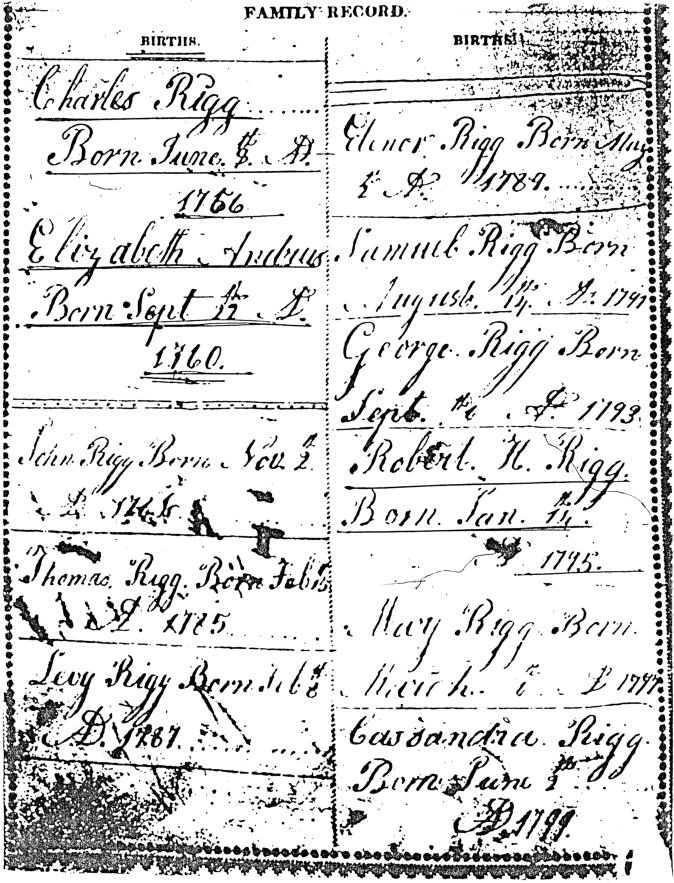 FAMILY RECORD.
BIRTHS.
Charles Rigg
Born June A.D.
1756
Elizabeth Andrews
Born Sept 12th A.D.
1760.
John Rigg Born Nov. 2
A.D.
Thomas Rigg Born Feb 15
A.D. 1785
Levy Rigg Born Feb 8th
A.D. 1787
BIRTHS
Elenor Rigg Born May
5 A.D. 1789
Samuel Rigg Born
August. 14th A.D. 1791
George Rigg Born
Sept. A.D. 1793
Robert H. Rigg.
Born Jan. 14th
1795.
Mary Rigg Born
March A.D. 1797
Cassandra Rigg
Born June 2th
A.D. 1799